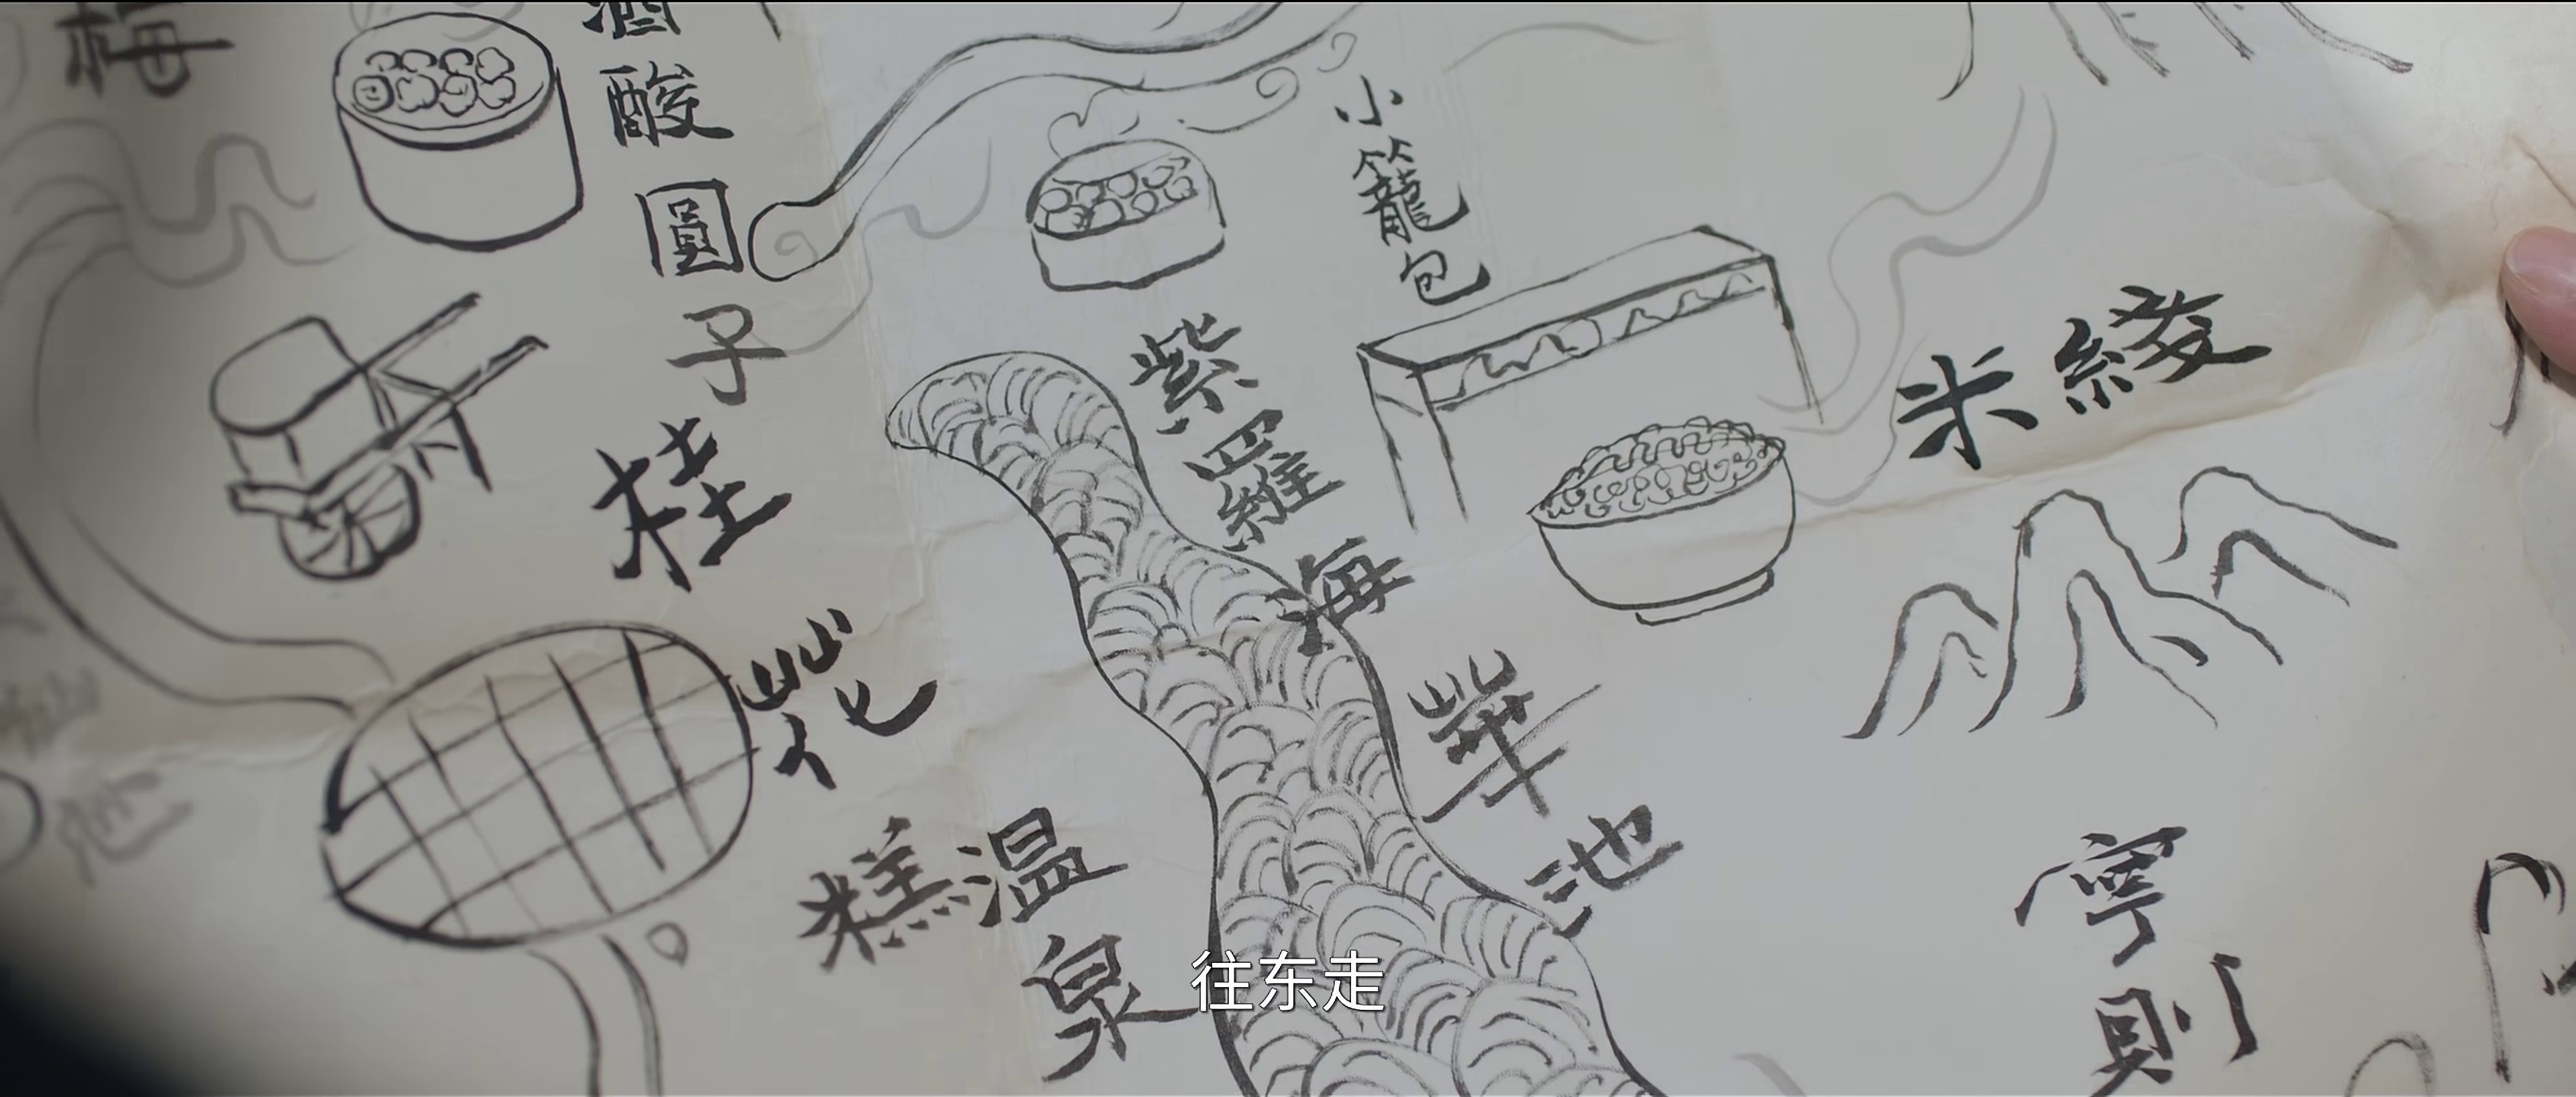 梅
酸圓子
小籠包
米綾
桂花糕
紫羅海
華池
溫泉
寧則
往东走